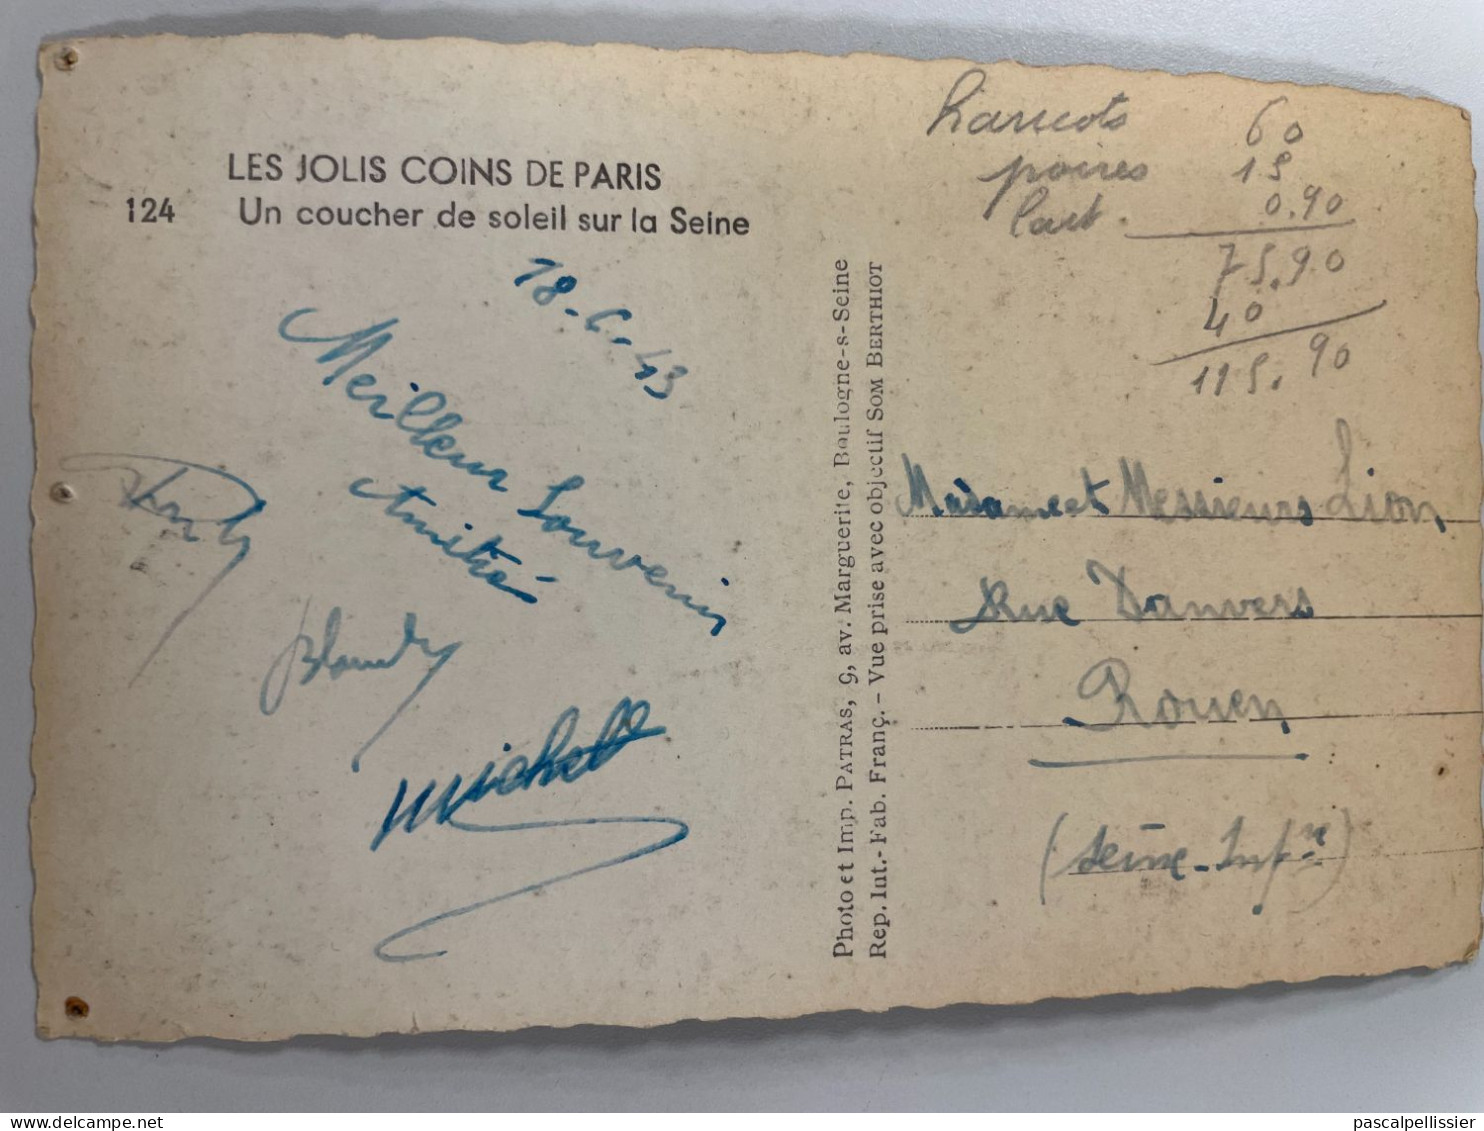 LES JOLIS COINS DE PARIS
124 Un coucher de soleil sur la Seine
18-6-43
Meilleur Souvenir
Amitié
Blandy
Michel
Photo et Imp. PATRAS, 9, av. Marguerite, Boulogne-s-Seine
Rep. Int.-Fab. Franç. – Vue prise avec objectif SOM BERTHIOT
haricots 60
poires 15
lait. 0.90
75.90
40
115.90
Madame et Messieurs Lion
Rue Danvers
Rouen
(Seine-Infre)
pascalpellissier